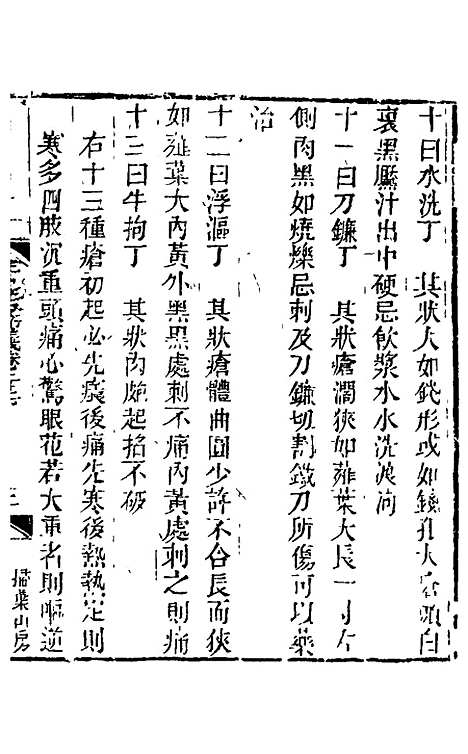 十曰水洗丁　其狀大如錢形或如錢孔大瘡頭白
裏黑黶汁出中硬忌飲漿水水洗渡河
十一曰刀鐮丁　其狀瘡濶狹如薤葉大長一寸左
側肉黑如燒爍忌刺及刀鐮切割鐵刀所傷可以藥
治
十二曰浮漚丁　其狀瘡體曲圓少許不合長而狹
如薤葉大內黃外黑黑處刺不痛內黃處刺之則痛
十三曰牛拘丁　其狀肉皰起掐不破
右十三種瘡初起必先痒後痛先寒後熱熱定則
寒多四肢沉重頭痛心驚眼花若大重者則嘔逆
掃葉山房